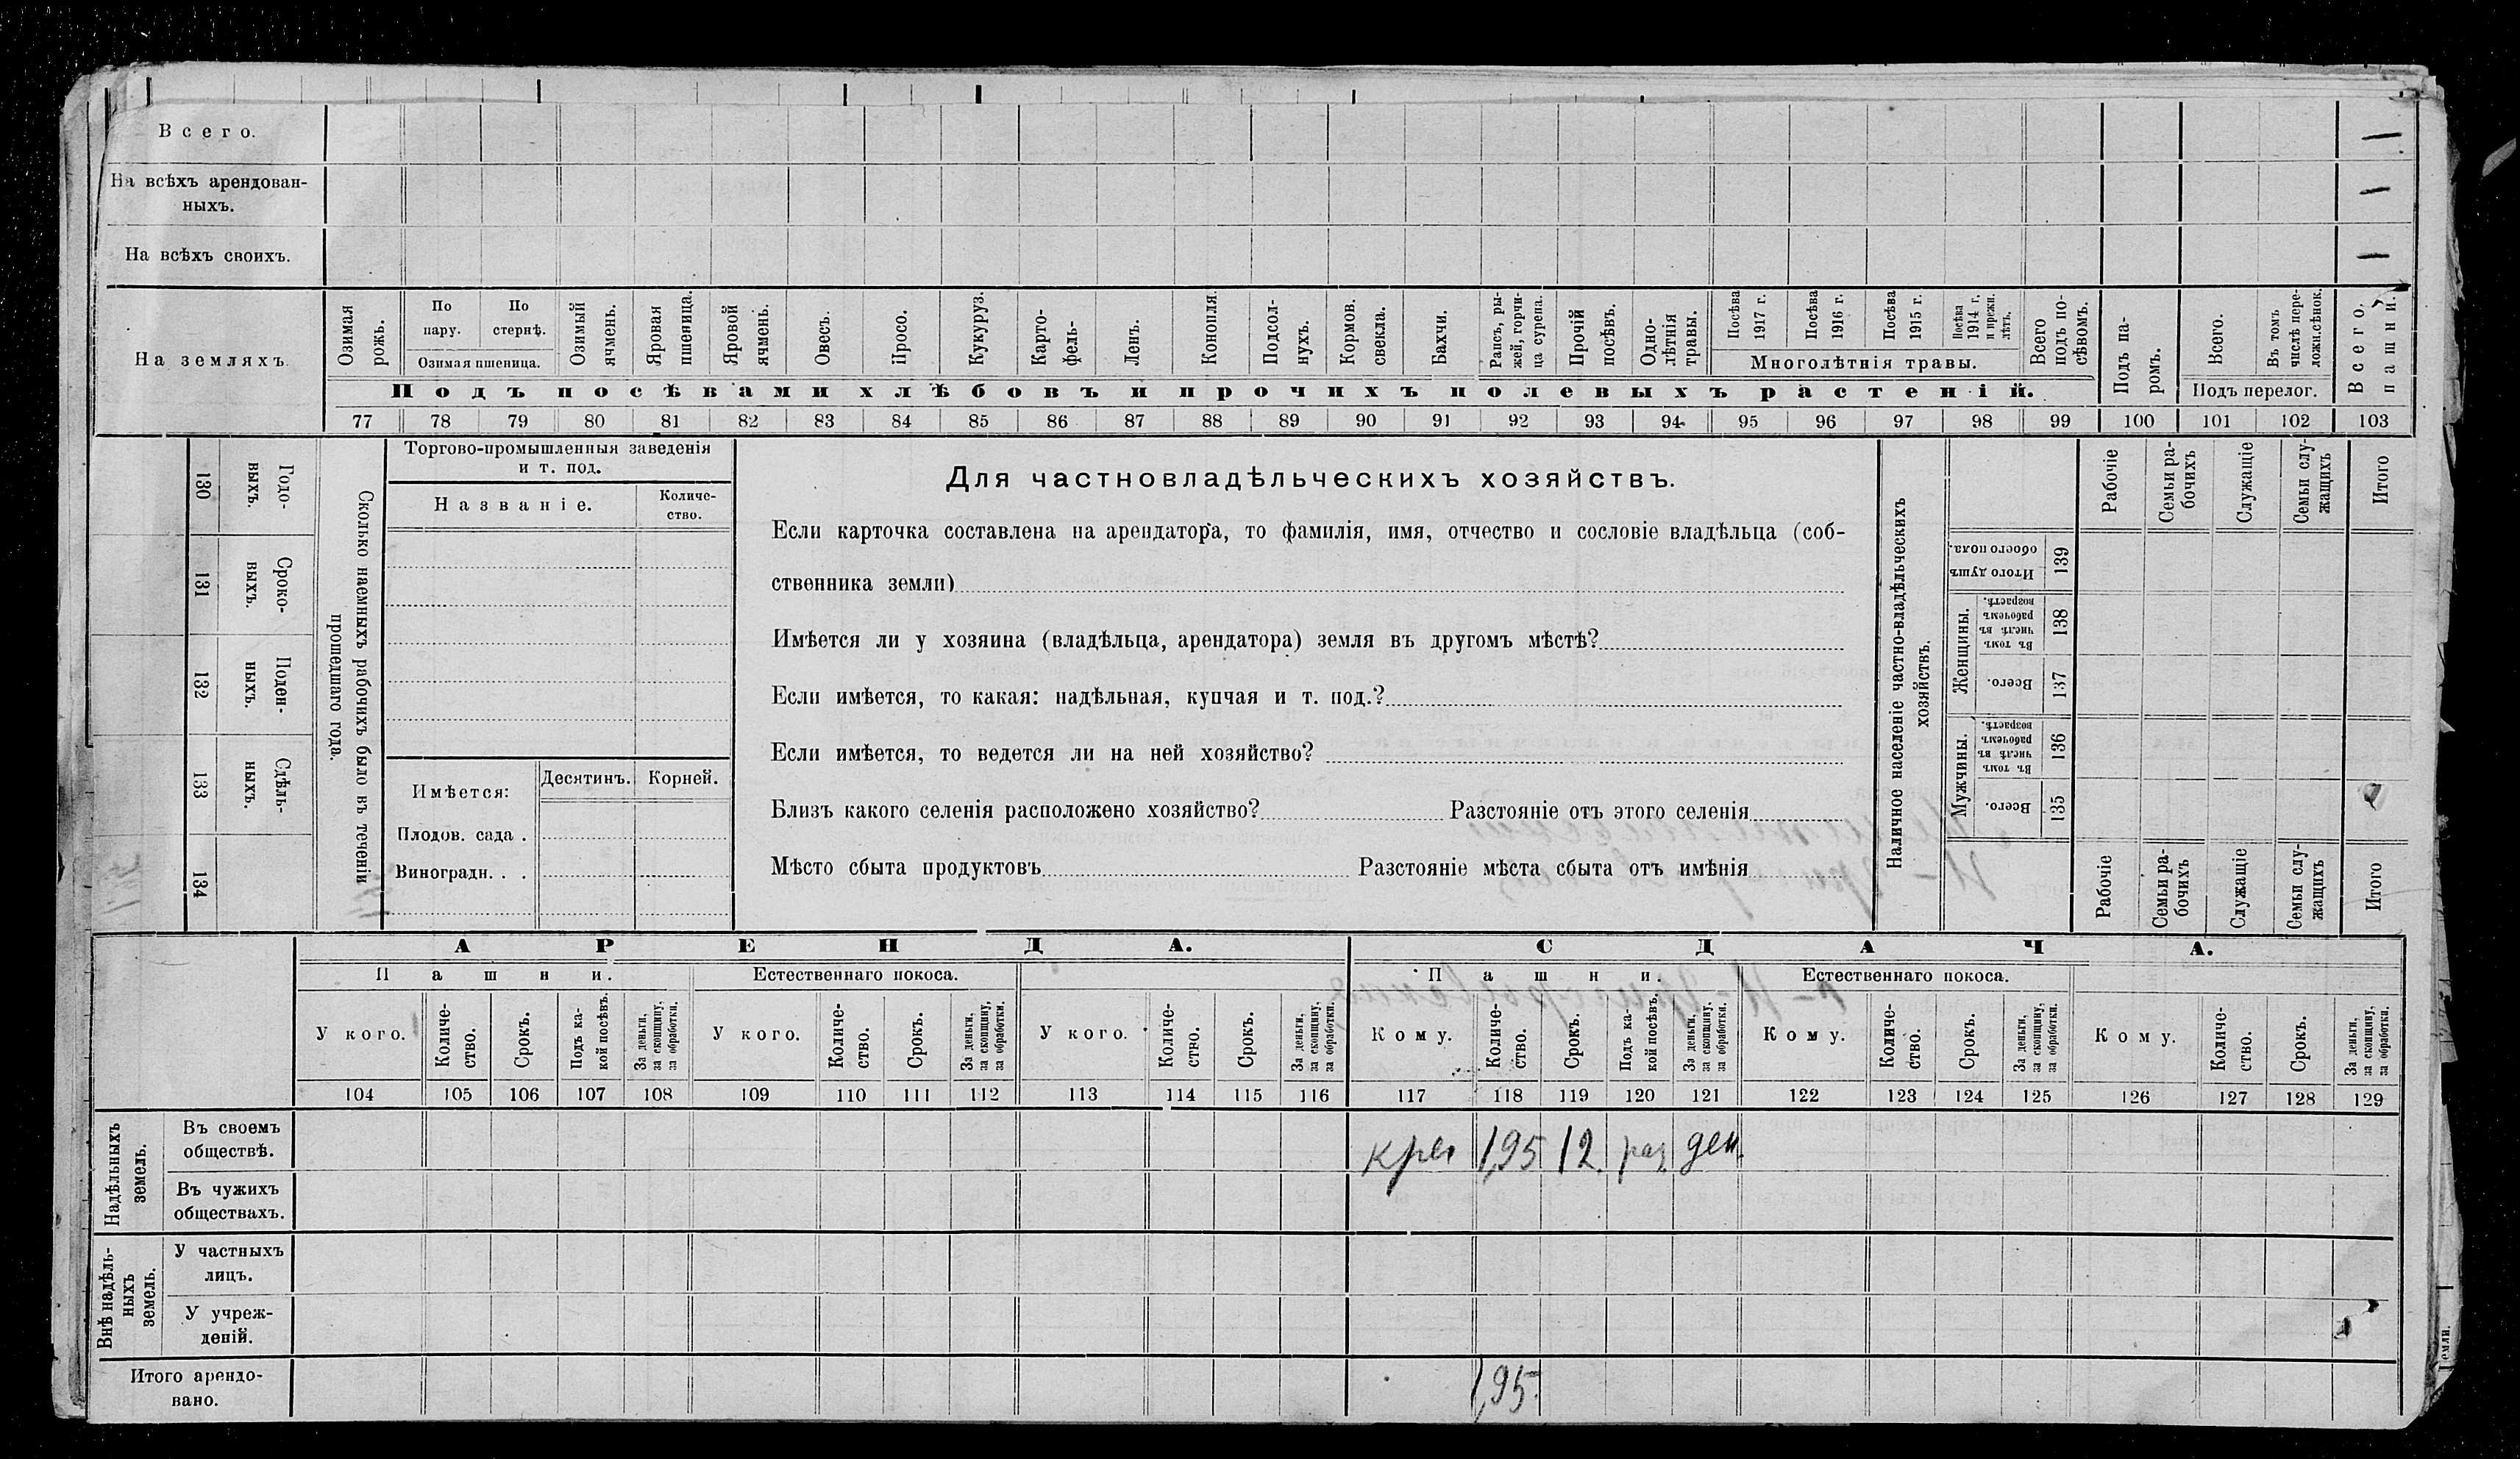 Всего.
На всѣхъ арендован-
ныхъ.
На всѣхъ своихъ.
На земляхъ
Озимая рожь.
По пару.
По стернѣ.
Озимая пшеница.
Озимый ячмень.
Яровая пшеница.
Яровой ячмень.
Овесъ.
Просо.
Кукуруз.
Карто-
фель-
Ленъ.
Конопля.
Подсол-
нухъ.
Кормов. свекла.
Бахчи.
Рапсъ, ры-
жей, горчи-
ца сурепа.
Прочій посѣвъ.
Одно-
лѣтнія травы.
Посѣва 1917 г.
Посѣва 1916 г.
Посѣва 1915 г.
Посѣва 1914 г. и прежн. лѣтъ.
Многолѣтнія травы.
Всего подъ по-
сѣвомъ.
Подъ па-
ромъ.
Всего.
Въ томъ числѣ пере-
ложн.сѣнок.
Подъ перелог.
Всего пашни.
Подъ посѣвами хлѣбовъ и прочихъ полевыхъ растеній.
77 78 79 80 81 82 83 84 85 86 87 88 89 90 91 92 93 94 95 96 97 98 99 100 101 102 103
130 Годо-
выхъ.
131 Сроко-
выхъ.
132 Поден-
ныхъ.
133 Сдѣль-
ныхъ.
134
Сколько наемныхъ рабочихъ было въ теченіи
прошедшаго года.
Торгово-промышленныя заведенія
и т. под.
Названіе.
Количе-
ство.
Имѣется:
Десятинъ.
Корней.
Плодов. сада .
Виноградн. . .
Для частновладѣльческихъ хозяйствъ.
Если карточка составлена на арендатора, то фамилія, имя, отчество и сословіе владѣльца (соб-
ственника земли)
Имѣется ли у хозяина (владѣльца, арендатора) земля въ другомъ мѣстѣ?
Если имѣется, то какая: надѣльная, купчая и т. под.?
Если имѣется, то ведется ли на ней хозяйство?
Близъ какого селенія расположено хозяйство? Разстояніе отъ этого селенія
Мѣсто сбыта продуктовъ Разстояніе мѣста сбыта отъ имѣнія
Наличное населеніе частно-владѣльческихъ
хозяйствъ.
Рабочіе
Семьи ра-
бочихъ
Служащіе
Семьи слу-
жащихъ
Итого
Итого душъ обоего пола.
139
Женщины.
Въ томъ числѣ въ рабочемъ возрастѣ.
138
Всего.
137
Мужчины.
Въ томъ числѣ въ рабочемъ возрастѣ.
136
Всего.
135
Рабочіе
Семьи ра-
бочихъ
Служащіе
Семьи слу-
жащихъ
Итого
АРЕНДА.
СДАЧА.
Пашни.
Естественнаго покоса.
Пашни.
Естественнаго покоса.
У кого.
Количе-
ство.
Срокъ.
Подъ ка-
кой посѣвъ.
За деньги, за скопщину, за обработки.
У кого.
Количе-
ство.
Срокъ.
За деньги, за скопщину, за обработки.
У кого.
Количе-
ство.
Срокъ.
За деньги, за скопщину, за обработки.
Кому.
Количе-
ство.
Срокъ.
Подъ ка-
кой посѣвъ.
За деньги, за скопщину, за обработки.
Кому.
Количе-
ство.
Срокъ.
За деньги, за скопщину, за обработки.
Кому.
Количе-
ство.
Срокъ.
За деньги, за скопщину, за обработки.
104 105 106 107 108 109 110 111 112 113 114 115 116 117 118 119 120 121 122 123 124 125 126 127 128 129
Надѣльныхъ земель.
Въ своемъ
обществѣ.
крес 1,95 12. раз ден.
Въ чужихъ
обществахъ.
Внѣ надѣль-
ныхъ земель.
У частныхъ
лицъ.
У учреж-
деній.
Итого арендо-
вано.
1,95.